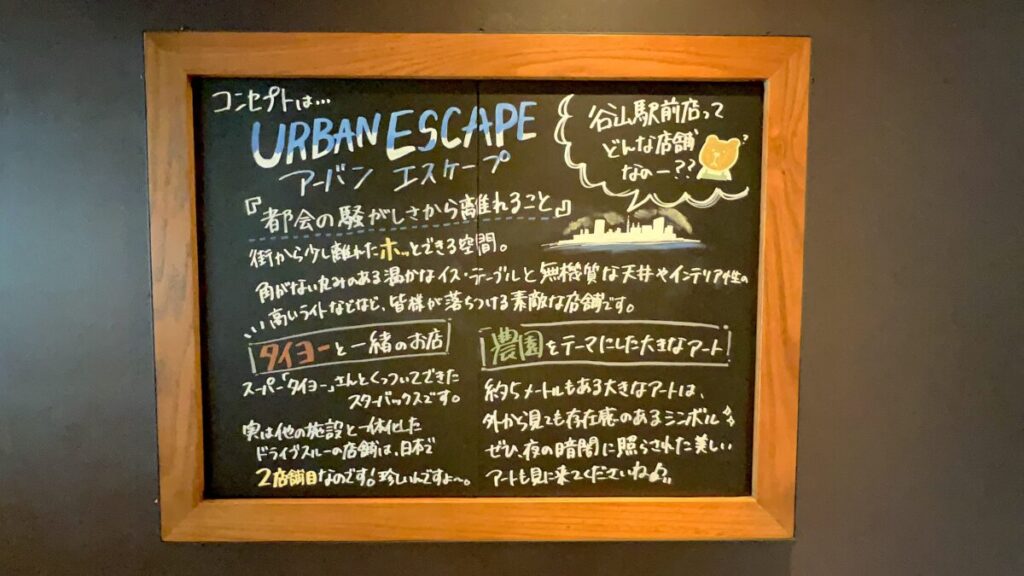 コンセプトは…
URBAN ESCAPE
アーバン エスケープ
谷山駅前店って
どんな店舗
なのー??
?
『都会の騒がしさから離れること』
街から少し離れたホッとできる空間。
角がない丸みのある温かなイス・テーブルと無機質な天井やインテリア性の
高いライトなどなど、皆様が落ちつける素敵な店舗です。
タイヨーと一緒のお店
スーパー「タイヨー」さんとくっついてできた
スターバックスです。
実は他の施設と一体化した
ドライブスルーの店舗は、日本で
2店舗目なのです!珍しいんですよ〜。
農園をテーマにした大きなアート
約5メートルもある大きなアートは、
外から見ても存在感のあるシンボル
ぜひ、夜の暗闇に照らされた美しい
アートも見に来てくださいね♪